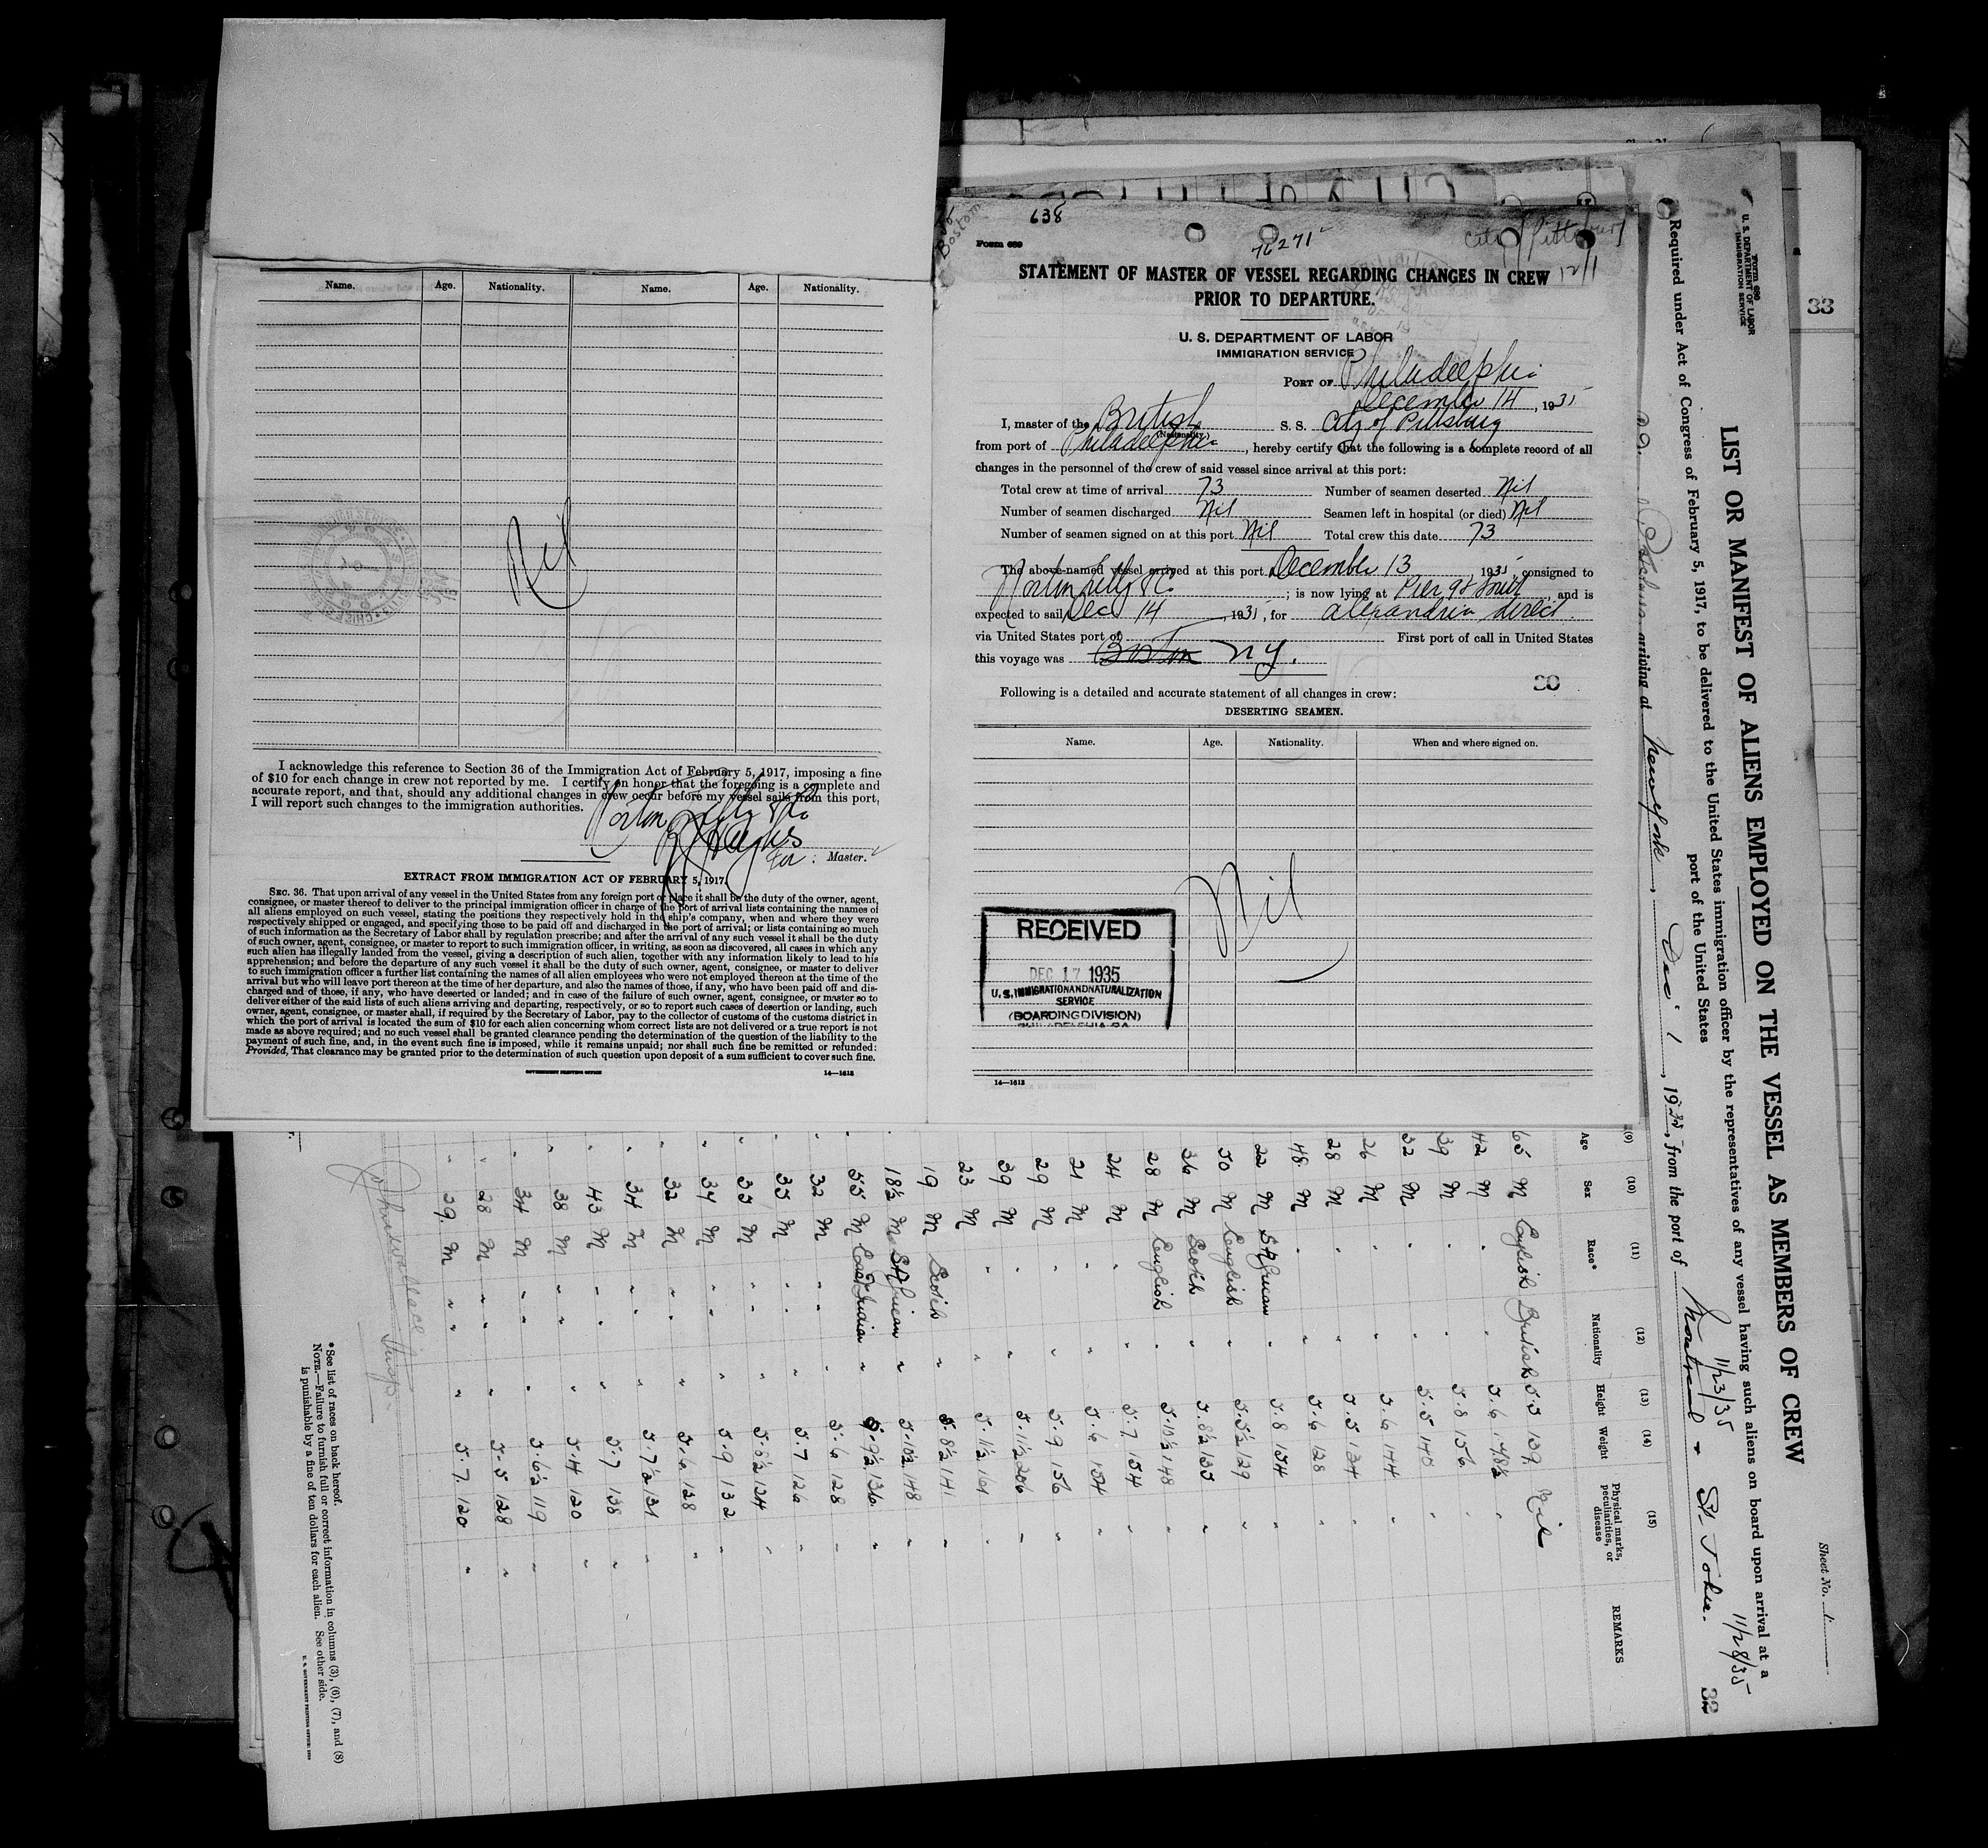 Name. Age. Nationality. Name. Age. Nationality.
Nil
I acknowledge this reference to Section 36 of the Immigration Act of February 5, 1917, imposing a fine
of $10 for each change in crew not reported by me. I certify on honor that the foregoing is a complete and
accurate report, and that, should any additional changes in crew occur before my vessel sails from this port,
I will report such changes to the immigration authorities.
Norton Lilly & Co
Hughes
For : Master.
EXTRACT FROM IMMIGRATION ACT OF FEBRUARY 5, 1917.
SEC. 36. That upon arrival of any vessel in the United States from any foreign port or place it shall be the duty of the owner, agent,
consignee, or master thereof to deliver to the principal immigration officer in charge of the port of arrival lists containing the names of
all aliens employed on such vessel, stating the positions they respectively hold in the ship's company, when and where they were
respectively shipped or engaged, and specifying those to be paid off and discharged in the port of arrival; or lists containing so much
of such information as the Secretary of Labor shall by regulation prescribe; and after the arrival of any such vessel it shall be the duty
of such owner, agent, consignee, or master to report to such immigration officer, in writing, as soon as discovered, all cases in which any
such alien has illegally landed from the vessel, giving a description of such alien, together with any information likely to lead to his
apprehension; and before the departure of any such vessel it shall be the duty of such owner, agent, consignee, or master to deliver
to such immigration officer a further list containing the names of all alien employees who were not employed thereon at the time of the
arrival but who will leave port thereon at the time of her departure, and also the names of those, if any, who have been paid off and dis-
charged and of those, if any, who have deserted or landed; and in case of the failure of such owner, agent, consignee, or master so to
deliver either of the said lists of such aliens arriving and departing, respectively, or so to report such cases of desertion or landing, such
owner, agent, consignee, or master shall, if required by the Secretary of Labor, pay to the collector of customs of the customs district in
which the port of arrival is located the sum of $10 for each alien concerning whom correct lists are not delivered or a true report is not
made as above required; and no such vessel shall be granted clearance pending the determination of the question of the liability to the
payment of such fine, and, in the event such fine is imposed, while it remains unpaid; nor shall such fine be remitted or refunded:
Provided, That clearance may be granted prior to the determination of such question upon deposit of a sum sufficient to cover such fine.
GOVERNMENT PRINTING OFFICE 14—1613
Boston
638
Form 689
76271
City of Pittsburg
12/1
STATEMENT OF MASTER OF VESSEL REGARDING CHANGES IN CREW
PRIOR TO DEPARTURE.
U. S. DEPARTMENT OF LABOR
IMMIGRATION SERVICE
PORT OF Philadelphia
December 14, 1935
I, master of the British S. S. City of Pittsburg
(Nationality)
from port of Philadelphia, hereby certify that the following is a complete record of all
changes in the personnel of the crew of said vessel since arrival at this port:
Total crew at time of arrival 73 Number of seamen deserted Nil
Number of seamen discharged Nil Seamen left in hospital (or died) Nil
Number of seamen signed on at this port Nil Total crew this date 73
The above-named vessel arrived at this port December 13 1935, consigned to
Norton Lilly & Co. ; is now lying at Pier 98 South, and is
expected to sail Dec 14, 1935, for Alexandria direct.
via United States port of First port of call in United States
this voyage was Boston N Y.
Following is a detailed and accurate statement of all changes in crew: 30
DESERTING SEAMEN.
Name. Age. Nationality. When and where signed on.
Nil
RECEIVED
DEC 17 1935
U. S. IMMIGRATION AND NATURALIZATION
SERVICE
(BOARDING DIVISION)
PHILADELPHIA PA
14—1613
33
Sheet No. 1
Form 680
U. S. DEPARTMENT OF LABOR
IMMIGRATION SERVICE
LIST OR MANIFEST OF ALIENS EMPLOYED ON THE VESSEL AS MEMBERS OF CREW
Required under Act of Congress of February 5, 1917, to be delivered to the United States immigration officer by the representatives of any vessel having such aliens on board upon arrival at a
port of the United States
arriving at New York, Dec 1, 1935, from the port of Montreal - St John.
11/23/35 11/28/35
32
(9) (10) (11) (12) (13) (14) (15)
Age Sex Race* Nationality Height Weight Physical marks, peculiarities, or disease REMARKS
65 M English British 5.5 139 Nil
42 M " " 5.6 148½ "
39 M " " 5.8 156 "
32 M " " 5.5 140 "
26 M " " 5.6 144 "
28 M " " 5.5 134 "
48 M " " 5.6 128 "
22 M S African " 5.8 154 "
50 M English " 5.5½ 129 "
36 M Scotch " 5.8½ 135 "
28 M English " 5.10½ 148 "
24 M " " 5.7 154 "
21 M " " 5.6 154 "
29 M " " 5.9 156 "
39 M " " 5.11½ 206 "
23 M " " 5.11½ 161 "
19 M Scotch " 5.8½ 141 "
18½ M S African " 5.10½ 148 "
55 M East Indian " 5.9½ 136 "
32 M " " 5.6 128 "
35 M " " 5.7 126 "
35 M " " 5.8½ 124 "
34 M " " 5.9 132 "
32 M " " 5.6 128 "
34 M " " 5.7½ 131 "
43 M " " 5.7 138 "
38 M " " 5.4 120 "
34 M " " 5.6½ 119 "
28 M " " 5.5 128 "
29 M " " 5.7 120 "
John Wallace
*See list of races on back hereof.
NOTE.—Failure to furnish full or correct information in columns (3), (6), (7), and (8)
is punishable by a fine of ten dollars for each alien. See other side.
U. S. GOVERNMENT PRINTING OFFICE